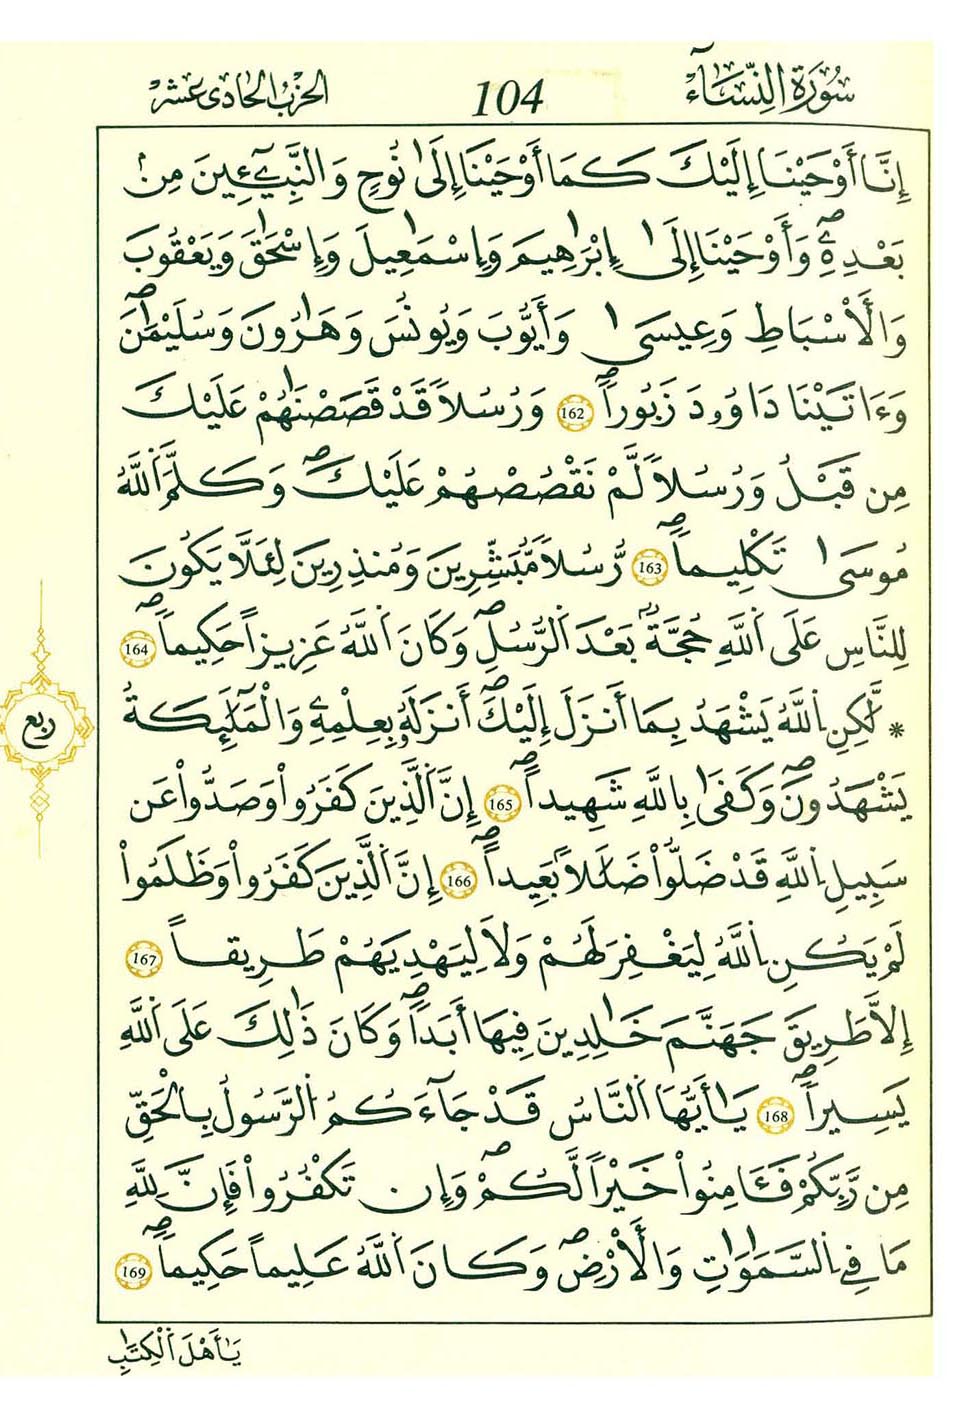 سُورَةُ النِّسَآءِ
104
الحزب الحادي عشر
إِنَّآ أَوْحَيْنَآ إِلَيْكَ كَمَآ أَوْحَيْنَآ إِلَىٰ نُوحٍ وَالنَّبِيٓـِٕينَ مِنۢ
بَعْدِهِۦ وَأَوْحَيْنَآ إِلَىٰٓ إِبْرَٰهِيمَ وَإِسْمَٰعِيلَ وَإِسْحَٰقَ وَيَعْقُوبَ
وَالْأَسْبَاطِ وَعِيسَىٰ وَأَيُّوبَ وَيُونُسَ وَهَٰرُونَ وَسُلَيْمَٰنَ
وَءَاتَيْنَا دَاوُۥدَ زَبُوراً 162 وَرُسُلاً قَدْ قَصَصْنَٰهُمْ عَلَيْكَ
مِن قَبْلُ وَرُسُلاً لَّمْ نَقْصُصْهُمْ عَلَيْكَ وَكَلَّمَ اَللَّهُ
مُوسَىٰ تَكْلِيماً 163 رُّسُلاً مُّبَشِّرِينَ وَمُنذِرِينَ لِئَلَّا يَكُونَ
لِلنَّاسِ عَلَى اَللَّهِ حُجَّةٌۢ بَعْدَ اَلرُّسُلِ وَكَانَ اَللَّهُ عَزِيزاً حَكِيماً 164
* لَّٰكِنِ اِللَّهُ يَشْهَدُ بِمَآ أَنزَلَ إِلَيْكَ أَنزَلَهُۥ بِعِلْمِهِۦ وَالْمَلَٰٓئِكَةُ
يَشْهَدُونَ وَكَفَىٰ بِاللَّهِ شَهِيداً 165 إِنَّ اَلَّذِينَ كَفَرُواْ وَصَدُّواْ عَن
سَبِيلِ اِللَّهِ قَدْ ضَلُّواْ ضَلَٰلاً بَعِيداً 166 إِنَّ اَلَّذِينَ كَفَرُواْ وَظَلَمُواْ
لَمْ يَكُنِ اِللَّهُ لِيَغْفِرَ لَهُمْ وَلاَ لِيَهْدِيَهُمْ طَرِيقاً 167
إِلاَّ طَرِيقَ جَهَنَّمَ خَٰلِدِينَ فِيهَآ أَبَداً وَكَانَ ذَٰلِكَ عَلَى اَللَّهِ
يَسِيراً 168 يَٰٓأَيُّهَا اَلنَّاسُ قَدْ جَآءَكُمُ اُلرَّسُولُ بِالْحَقِّ
مِن رَّبِّكُمْ فَـَٔامِنُواْ خَيْراً لَّكُمْ وَإِن تَكْفُرُواْ فَإِنَّ لِلَّهِ
مَا فِي اِلسَّمَٰوَٰتِ وَالْأَرْضِ وَكَانَ اَللَّهُ عَلِيماً حَكِيماً 169
ربع
يَٰٓأَهْلَ اَلْكِتَٰبِ